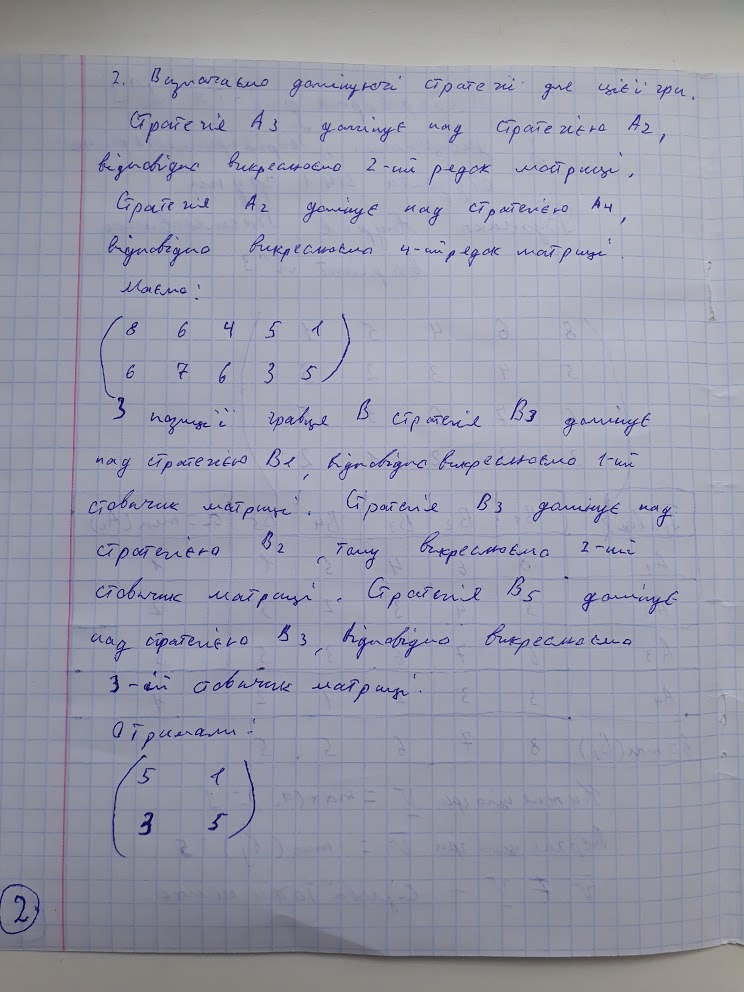 2. Визначаємо домінуючі стратегії для цієї гри.
Стратегія A3 домінує над стратегією A2,
відповідно викреслюємо 2-ий рядок матриці.
Стратегія A2 домінує над стратегією A4,
відповідно викреслюємо 4-ий рядок матриці.
Маємо:
8 6 4 5 1
6 7 6 3 5
З позиції гравця B стратегія B3 домінує
над стратегією B1, відповідно викреслюємо 1-ий
стовпчик матриці. Стратегія B3 домінує над
стратегією B2, тому викреслюємо 2-ий
стовпчик матриці. Стратегія B5 домінує
над стратегією B3, відповідно викреслюємо
3-ій стовпчик матриці.
Отримали:
5 1
3 5
2